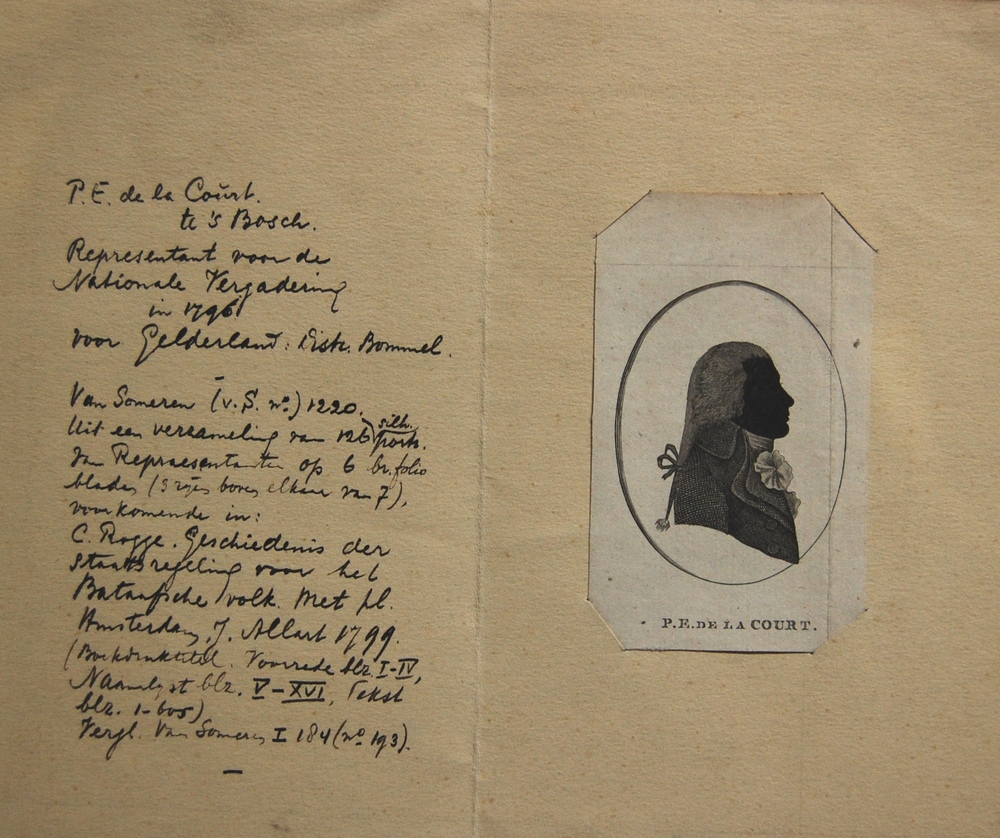 P.E. de la Court.
te 's Bosch.
Representant voor de
Nationale Vergadering
in 1796
voor Gelderland: Distr. Bommel.
Van Someren (v. S. no.) 1220.
Uit een verzameling van 126 silh. portr.
van Repraesentanten op 6 br. folio
bladen (3 rijen boven elkaar van 7),
voorkomende in:
C. Rogge. Geschiedenis der
Staatsregeling voor het
Bataafsche volk. Met pl.
Amsterdam, J. Allart 1799.
(Boekdruktitel. Voorrede blz. I-IV,
Naamlyst blz. V-XVI, Tekst
blz. 1-605)
Vergl. Van Someren I 184 (no 193).
P.E. DE LA COURT.